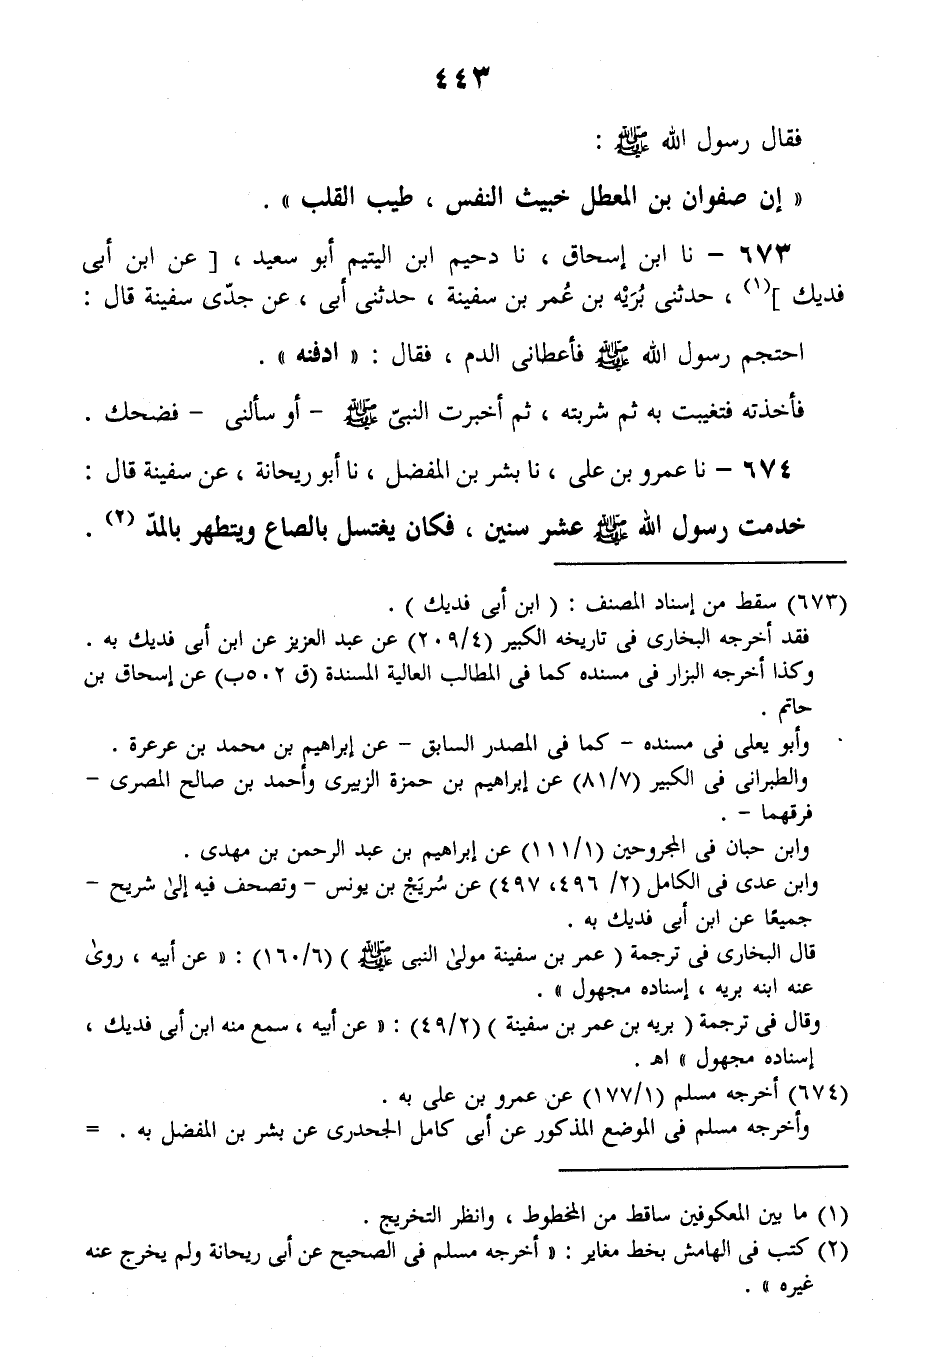 ٤٤٣
فقال رسول الله ﷺ :
« إن صفوان بن المعطل خبيث النفس ، طيب القلب » .
٦٧٣ – نا ابن إسحاق ، نا دحيم ابن اليتيم أبو سعيد ، [ عن ابن أبى
فديك ](١) ، حدثنى بُرَيْه بن عُمر بن سفينة ، حدثنى أبى ، عن جدّى سفينة قال :
احتجم رسول الله ﷺ فأعطانى الدم ، فقال : « ادفنه » .
فأخذته فتغيبت به ثم شربته ، ثم أخبرت النبىّ ﷺ – أو سألنى – فضحك .
٦٧٤ – نا عمرو بن على ، نا بشر بن المفضل ، نا أبو ريحانة ، عن سفينة قال :
خدمت رسول الله ﷺ عشر سنين ، فكان يغتسل بالصاع ويتطهر بالمدّ (٢) .
(٦٧٣) سقط من إسناد المصنف : ( ابن أبى فديك ) .
فقد أخرجه البخارى فى تاريخه الكبير (٢٠٩/٤) عن عبد العزيز عن ابن أبى فديك به .
وكذا أخرجه البزار فى مسنده كما فى المطالب العالية المسندة (ق ٥٠٢ب) عن إسحاق بن
حاتم .
وأبو يعلى فى مسنده – كما فى المصدر السابق – عن إبراهيم بن محمد بن عرعرة .
والطبرانى فى الكبير (٨١/٧) عن إبراهيم بن حمزة الزبيرى وأحمد بن صالح المصرى –
فرقهما – .
وابن حبان فى المجروحين (١١١/١) عن إبراهيم بن عبد الرحمن بن مهدى .
وابن عدى فى الكامل (٢/ ٤٩٦، ٤٩٧) عن سُرَيَجْ بن يونس – وتصحف فيه إلىٰ شريح –
جميعًا عن ابن أبى فديك به .
قال البخارى فى ترجمة ( عمر بن سفينة مولىٰ النبى ﷺ ) (١٦٠/٦) : « عن أبيه ، روىٰ
عنه ابنه بريه ، إسناده مجهول » .
وقال فى ترجمة ( بريه بن عمر بن سفينة ) (٤٩/٢) : « عن أبيه ، سمع منه ابن أبى فديك ،
إسناده مجهول » اهـ .
(٦٧٤) أخرجه مسلم (١٧٧/١) عن عمرو بن على به .
وأخرجه مسلم فى الموضع المذكور عن أبى كامل الجحدرى عن بشر بن المفضل به . =
(١) ما بين المعكوفين ساقط من المخطوط ، وانظر التخريج .
(٢) كتب فى الهامش بخط مغاير : « أخرجه مسلم فى الصحيح عن أبى ريحانة ولم يخرج عنه
غيره » .